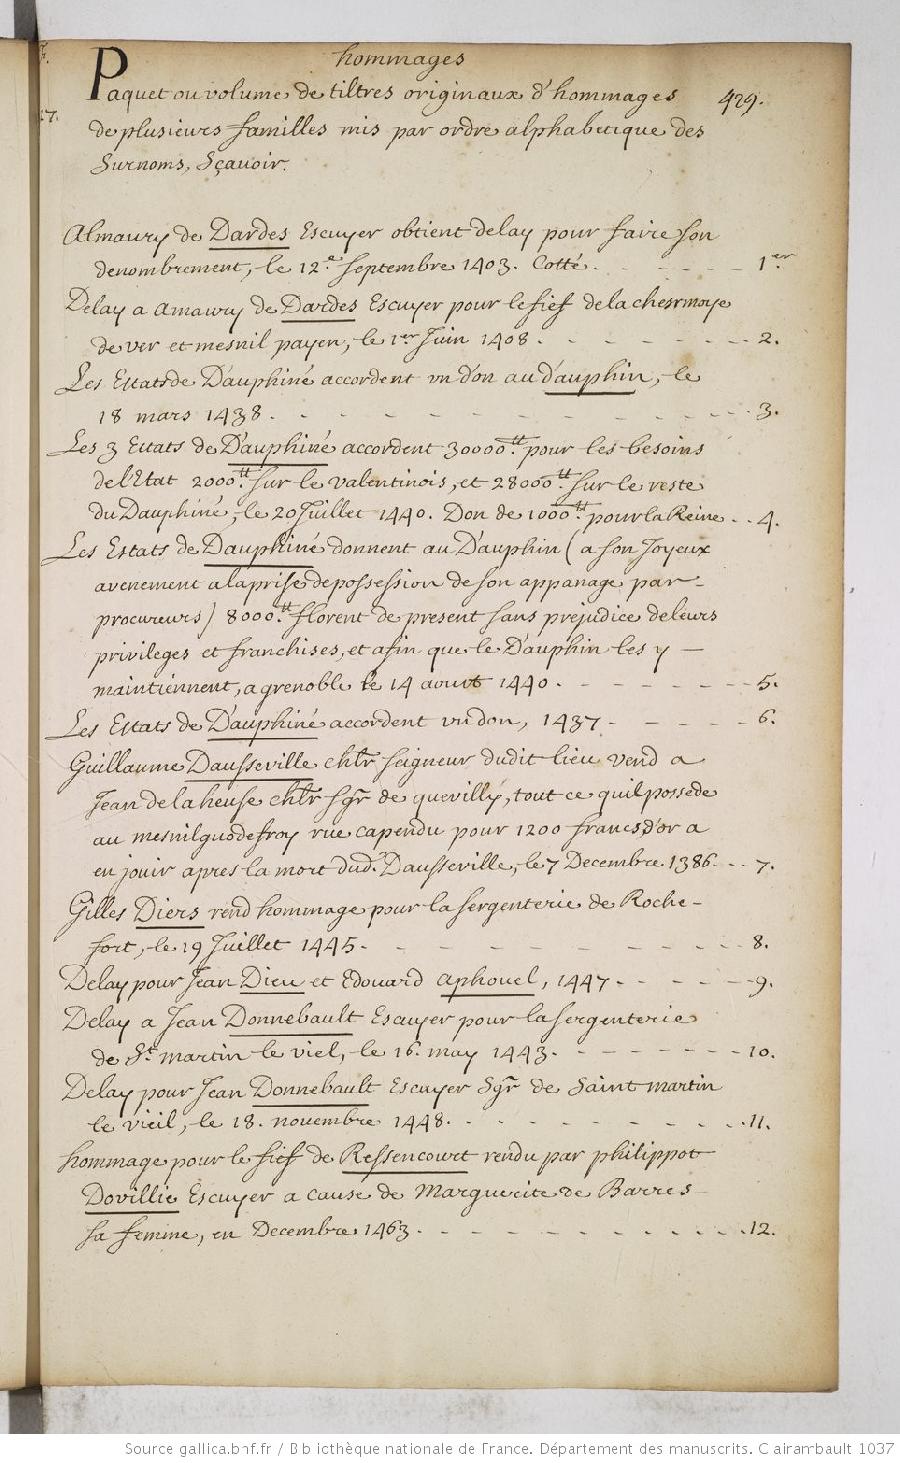 hommages
Paquet ou volume de tiltres originaux d'hommages 429.
de plusieurs familles mis par ordre alphabetique des
Surnoms, Sçauoir.
Almaury de Dardes Escuyer obtient delay pour faire son
denombrement, le 12.e septembre 1403. Cotté. 1er
Delay a amaury de Dardes Escuyer pour le fief de la
de ver et mesnil payen, le 1er Juin 1408. 2.
Les Estats de D'auphiné accordent vn d'on au d'auphin, le
18 mars 1438. 3.
Les 3 Estats de D'auphiné accordent 30000.tt pour les besoins
de l'Etat 2000.tt sur le valentinois, et 28000.tt sur le reste
du Dauphiné, le 20 Juillet 1440. Don de 1000tt pour la Reine 4.
Les Estats de Dauphiné donnent au D'auphin (a son Joyeux
avenement a la prise de possession de son appanage par
procureurs) 8000.tt florent de present sans prejudice de leurs
privileges et franchises, et afin que le D'auphin les y
maintiennent, a grenoble le 14 aoust 1440. 5.
Les Estats de D'auphiné accordent vn don, 1437. 6.
Guillaume Dausseville chlr seigneur dudit lieu vend a
Jean de la heuse chlr sgr de quevilly, tout ce quil possede
au mesnilguodefroy rue capendu pour 1200 francs d'or a
en jouir apres la mort dud. Dausseville, le 7 Decembre 1386. 7.
Gilles Diers rend hommage pour la sergenterie de Roche-
fort, le 19 Juillet 1445. 8.
Delay pour Jean Dieu et Edouard aphouel, 1447. 9.
Delay a Jean Donnebault Escuyer pour la sergenterie
de St. martin le viel, le 16. may 1443. 10.
Delay pour Jean Donnebault Escuyer sgr de saint martin
le vieil, le 18. novembre 1448. 11.
hommage pour le fief de Ressencourt rendu par philippot
Dovillie Escuyer a cause de Marguerite de Barres
sa femme, en Decembre 1463. 12.
Source gallica.bnf.fr / Bibliothèque nationale de France. Département des manuscrits. Clairambault 1037